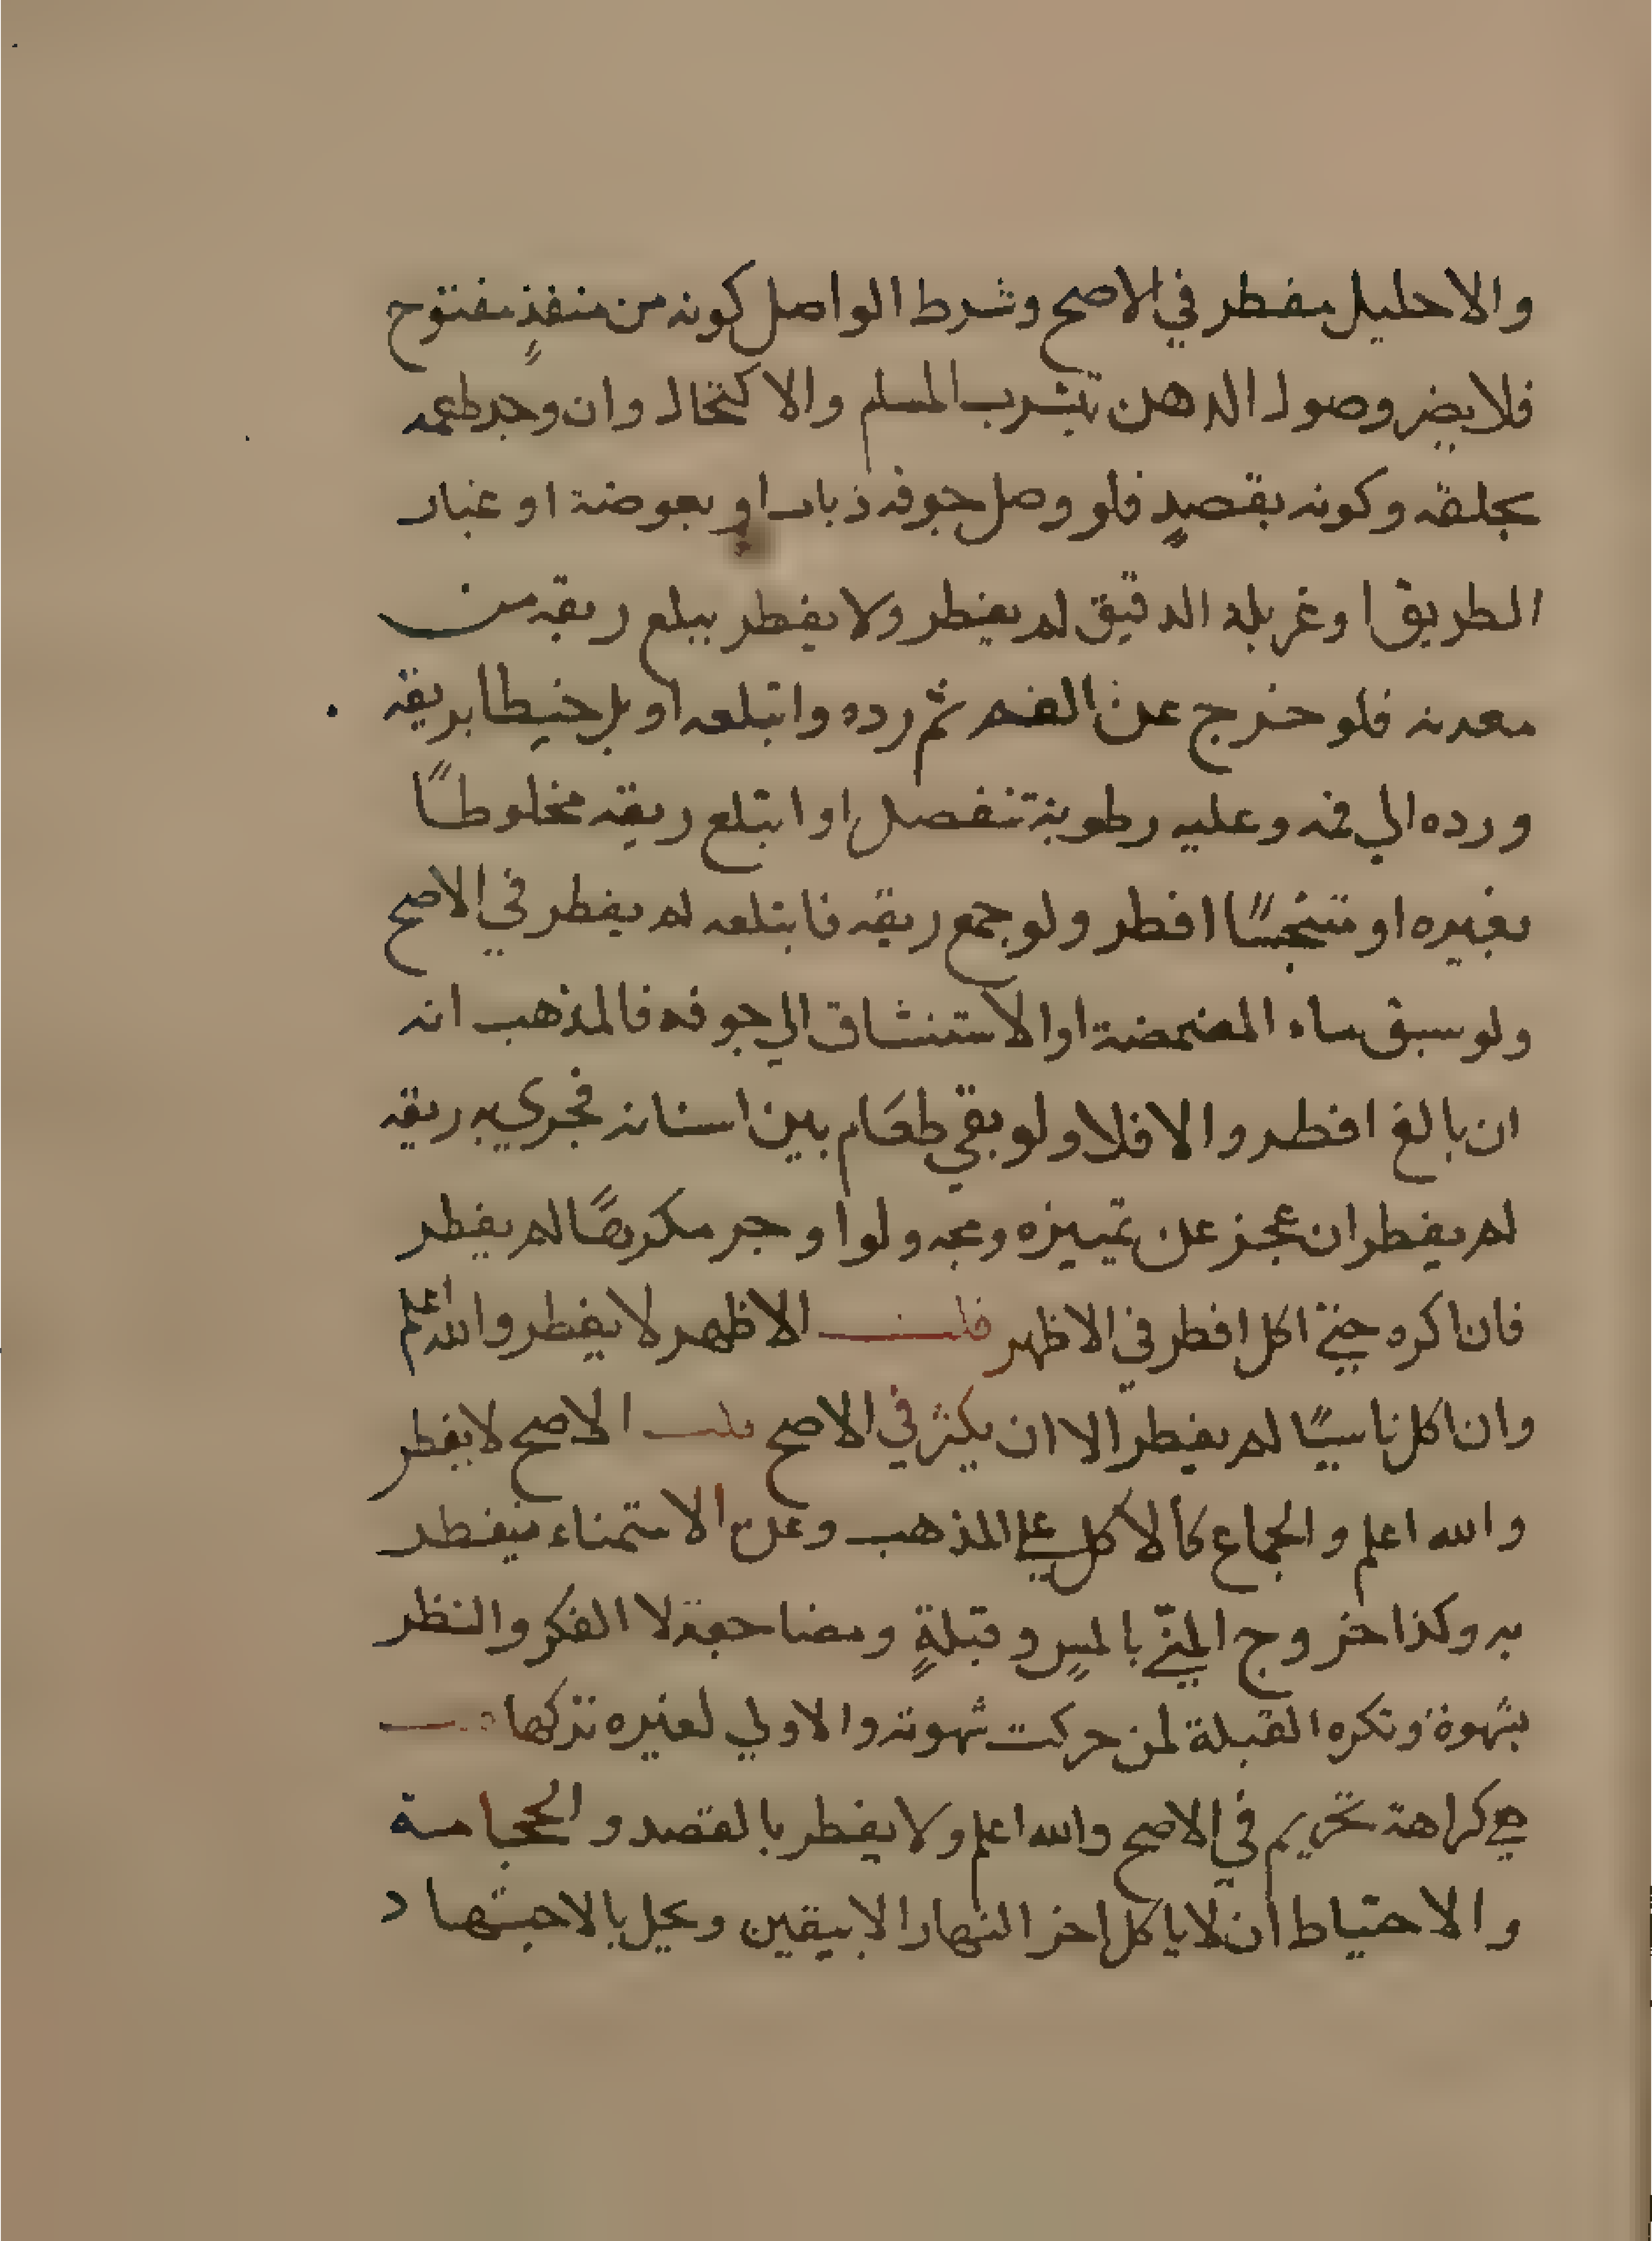 والاحليل مفطر في الاصح وشرط الواصل كونه من منفذٍ مفتوح
فلا يضر وصول الدهن بتشرب المسام والاكتحال وان وجد طعمه
بحلقه وكونه بقصدٍ فلو وصل جوفه ذباب او بعوضة او غبار
الطريق او غربلة الدقيق لم يفطر ولا يفطر ببلع ريقه من
معدنه فلو خرج عن الفم ثم رده وابتلعه او بل خيطا بريقه
ورده الي فمه وعليه رطوبة تنفصل او ابتلع ريقه مخلوطًا
بغيره او متنجسًا افطر ولو جمع ريقه فابتلعه لم يفطر في الاصح
ولو سبق ماء المضمضة او الاستنشاق الي جوفه فالمذهب انه
ان بالغ افطر والا فلا ولو بقي طعَام بين اسنانه فجري به ريقه
لم يفطر ان عجز عن تمييزه ومجه ولو اوجر مكرهًا لم يفطر
فان اكره حتي اكل افطر في الاظهر قلت الاظهر لا يفطر والله اعلم
وان اكل ناسيًا لم يفطر الا ان يكثر في الاصح قلت الاصح لا يفطر
والله اعلم والجماع كالاكل علي المذهب وعن الاستمناء فيفطر
به وكذا خروج المنّي بالمسٍ وقبلةٍ ومضاجعة لا الفكر والنظر
بشهوة وتكره القبلة لمن حركت شهوته والاولي لغيره تركها قلت
هي كراهة تحريم في الاصح والله اعلم ولا يفطر بالفصد والحجامة
والاحتياط ان لا ياكل اخر النهار الا بيقين ويحل بالاجتهاد